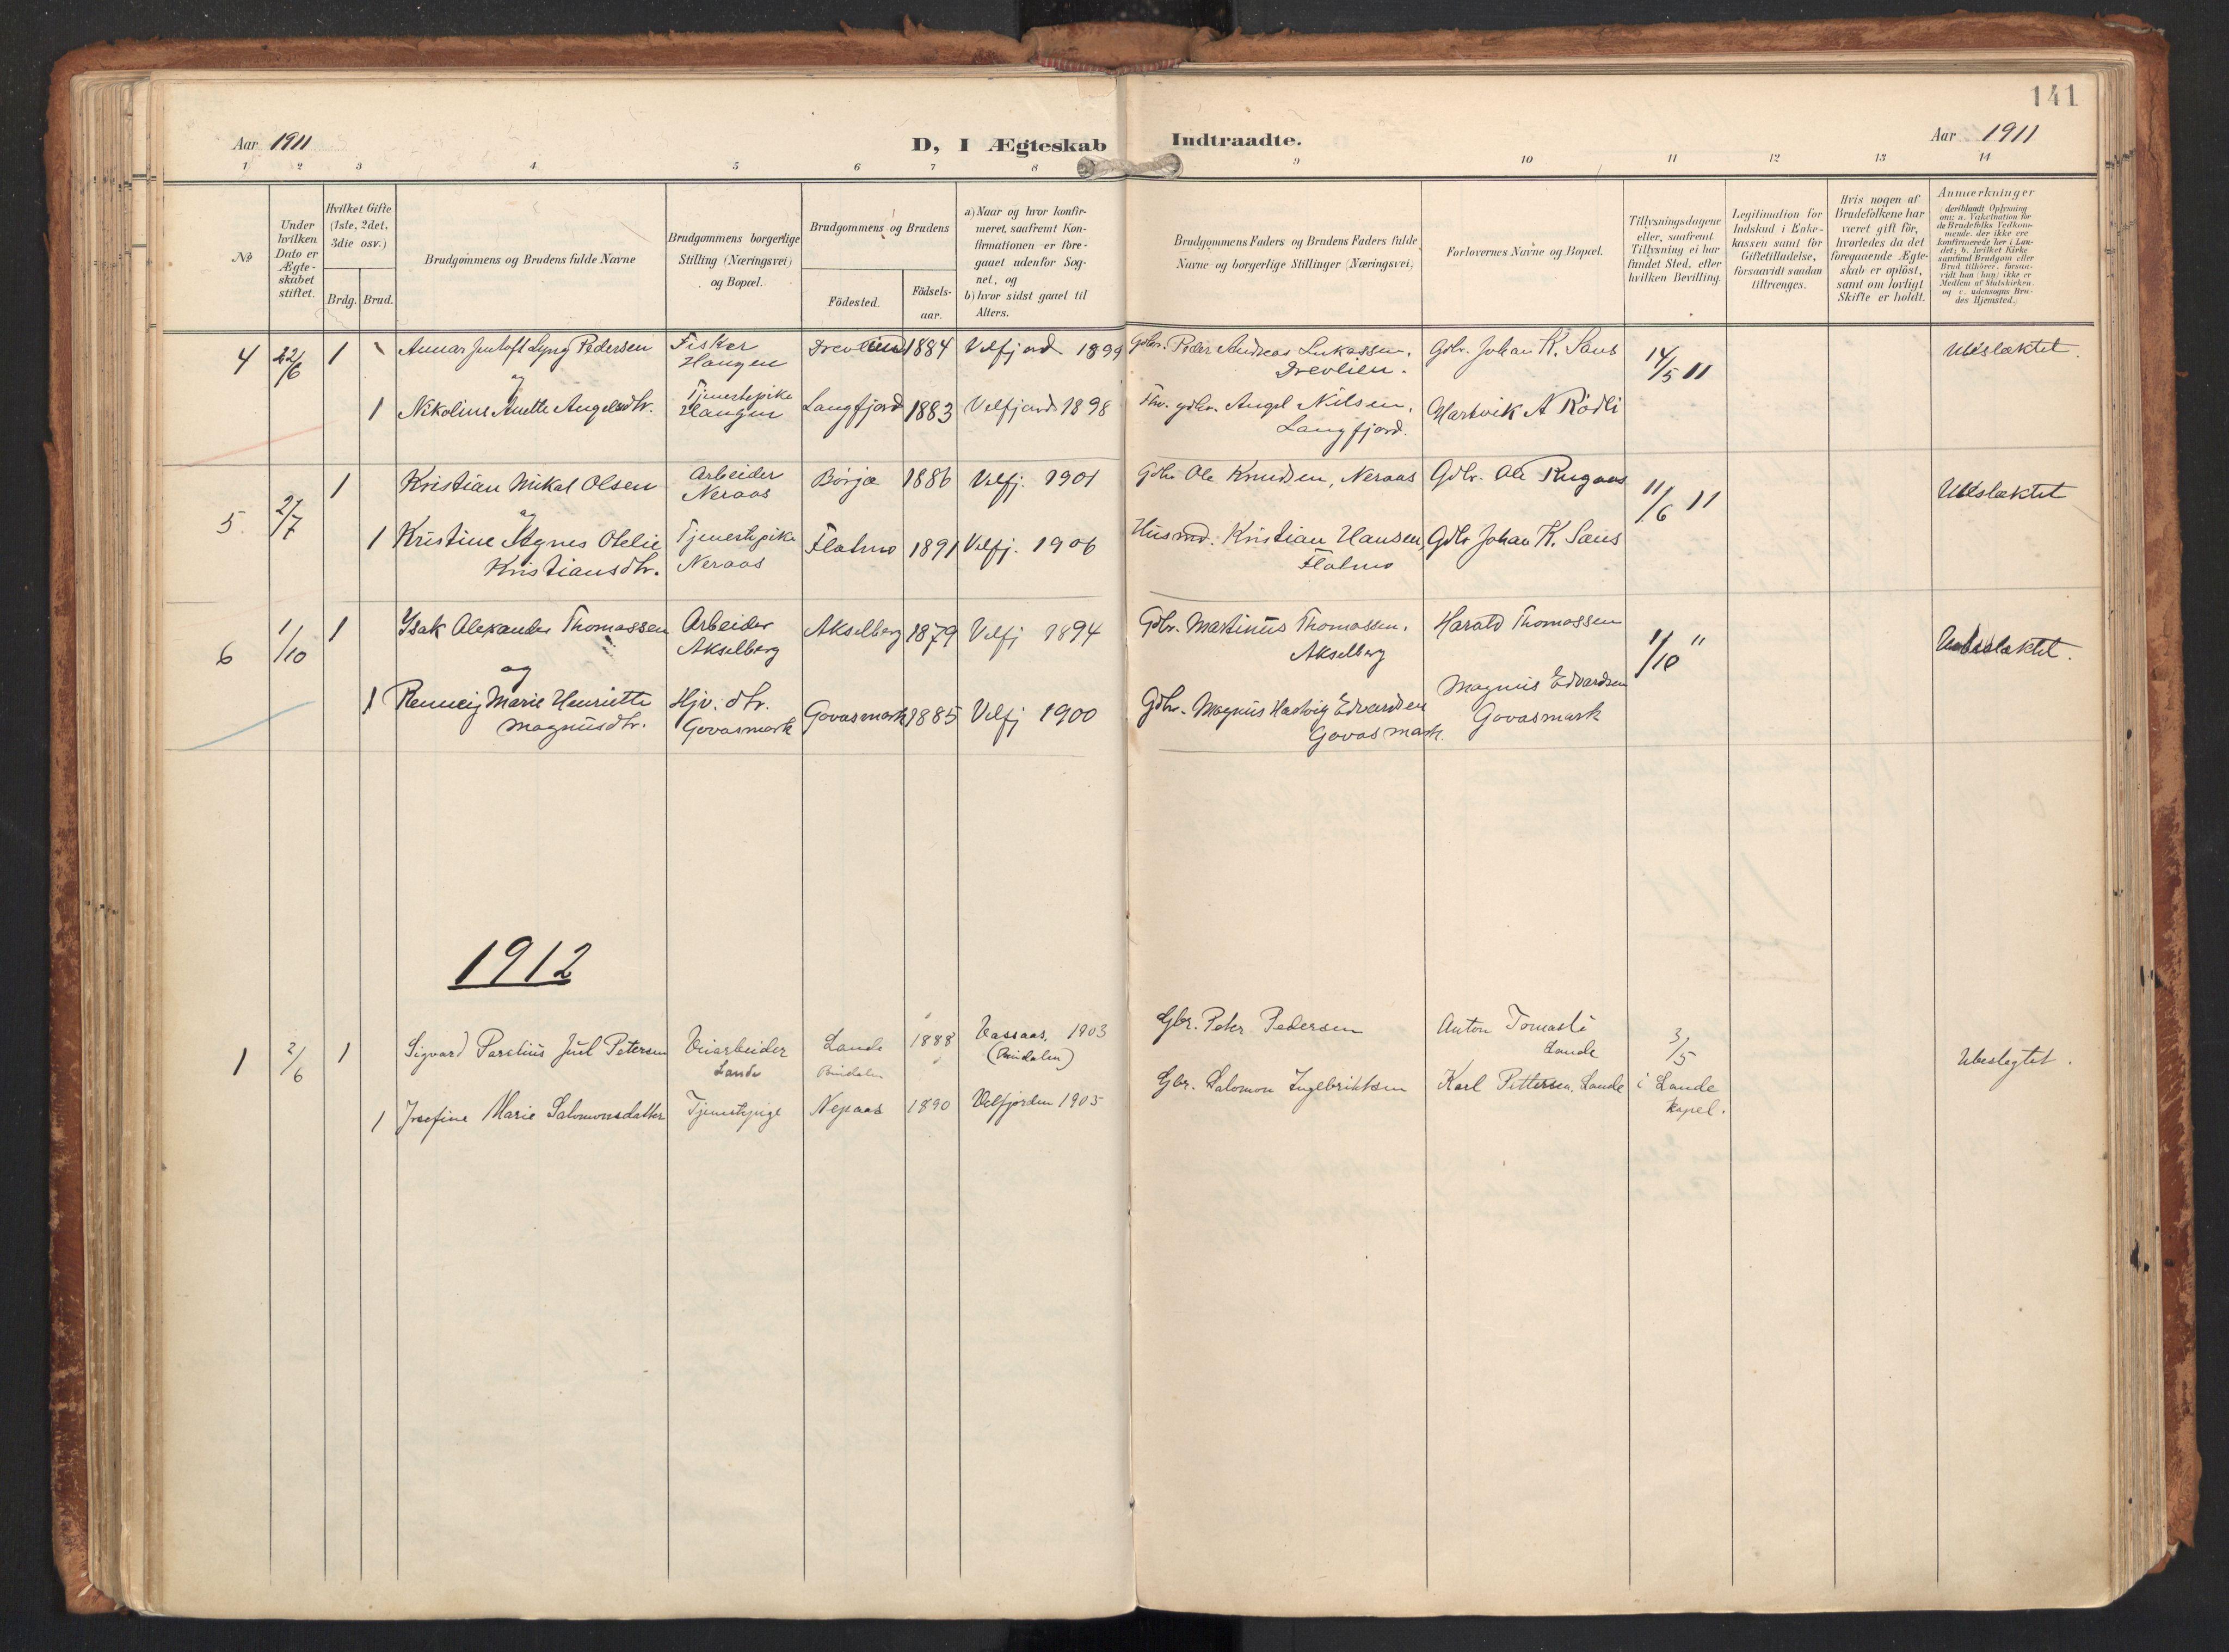 141
Aar 1911
D, I Ægteskab Indtraadte.
Aar 1911
1 2 3 4 5 6 7 8 9 10 11 12 13 14
No
Under hvilken Dato er Ægteskabet stiftet.
Hvilket Gifte (1ste, 2det, 3die osv.)
Brdg. Brud.
Brudgommens og Brudens fulde Navne
Brudgommens borgerlige Stilling (Næringsvei) og Bopæl.
Brudgommens og Brudens
Födested.
Födsels-aar.
a) Naar og hvor konfirmeret, saafremt Konfirmationen er foregaaet udenfor Sognet, og
b) hvor sidst gaaet til Alters.
Brudgommens Faders og Brudens Faders fulde Navne og borgerlige Stillinger (Næringsvei)
Forlovernes Navne og Bopæl.
Tillysningsdagene eller, saafremt Tillysning ei har fundet Sted, efter hvilken Bevilling.
Legitimation for Indskud i Enkekassen samt for Giftetilladelse, forsaavidt saadan tiltrænges.
Hvis nogen af Brudefolkene har været gift för, hvorledes da det foregaaende Ægteskab er oplöst, samt om lovligt Skifte er holdt.
Anmærkninger
(deriblandt Oplysning om: a. Vakcination for de Brudefolks Vedkommende, der ikke ere konfirmerede her i Landet; b. hvilket Kirkesamfund Brudgom eller Brud tilhörer, forsaavidt han (hun) ikke er Medlem af Statskirken, og c. udensogns Brudes Hjemsted.)
4 22/6 1 Lyng Pedersen Fisker Drevlien 1884 Velfjord 1899 Gdbr. Peder Andreas Lukassen. Gdbr. Johan K. Sans 14/5 11 Ubeslektet.
Haugen Drevlien.
og
1 Nikoline Anette Angelsdtr. Tjenestepike Langfjord 1883 Velfjord 1898 Fhv. gdbr. Angel Nilsen. Hartvik A Rödli
Haugen Langfjord.
5. 2/7 1 Kristian Mikal Olsen Arbeider Börjæ 1886 Velfj. 1901 Gdbr Ole Knudsen, Neraas Gdbr. Ole Rugaas 11/6 11 Ubeslektet
Neraas
og
1 Kristine Agnes Otelie Tjenestepike Flatmo 1891 Velfj. 1906 Husmd. Kristian Hansen, Gdbr Johan K. Sans
Kristiansdtr. Neraas Flatmo
6 1/10 1 Isak Alexander Thomassen Arbeider Akselberg 1879 Velfj 1894 Gdbr. Martinus Thomassen. Harald Thomassen 1/10 " Ubeslektet.
Akselberg Akselberg
og
1 Renneij Marie Henriette Hjv. dtr. Govasmark 1885 Velfj 1900 Gdbr. Magnus Hartvig Edvardsen Magnus Edvardsen
Magnusdtr. Govasmark Govasmark. Govasmark
1912
1 2/6 1 Sigvard Parelius Juul Petersen Veiarbeider Lande 1888 Vassaas, 1903 Gbr. Peter Pedersen Anton Tomasli 3/5 Ubeslegtet.
Lande Bindalen (Bindalen) Lande
1 Josefine Marie Salomonsdatter Tjenestepige Nepaas 1890 Velfjorden 1905 Gbr. Salomon Ingebriktsen Karl Pettersen, Lande i Lande
Kapel.